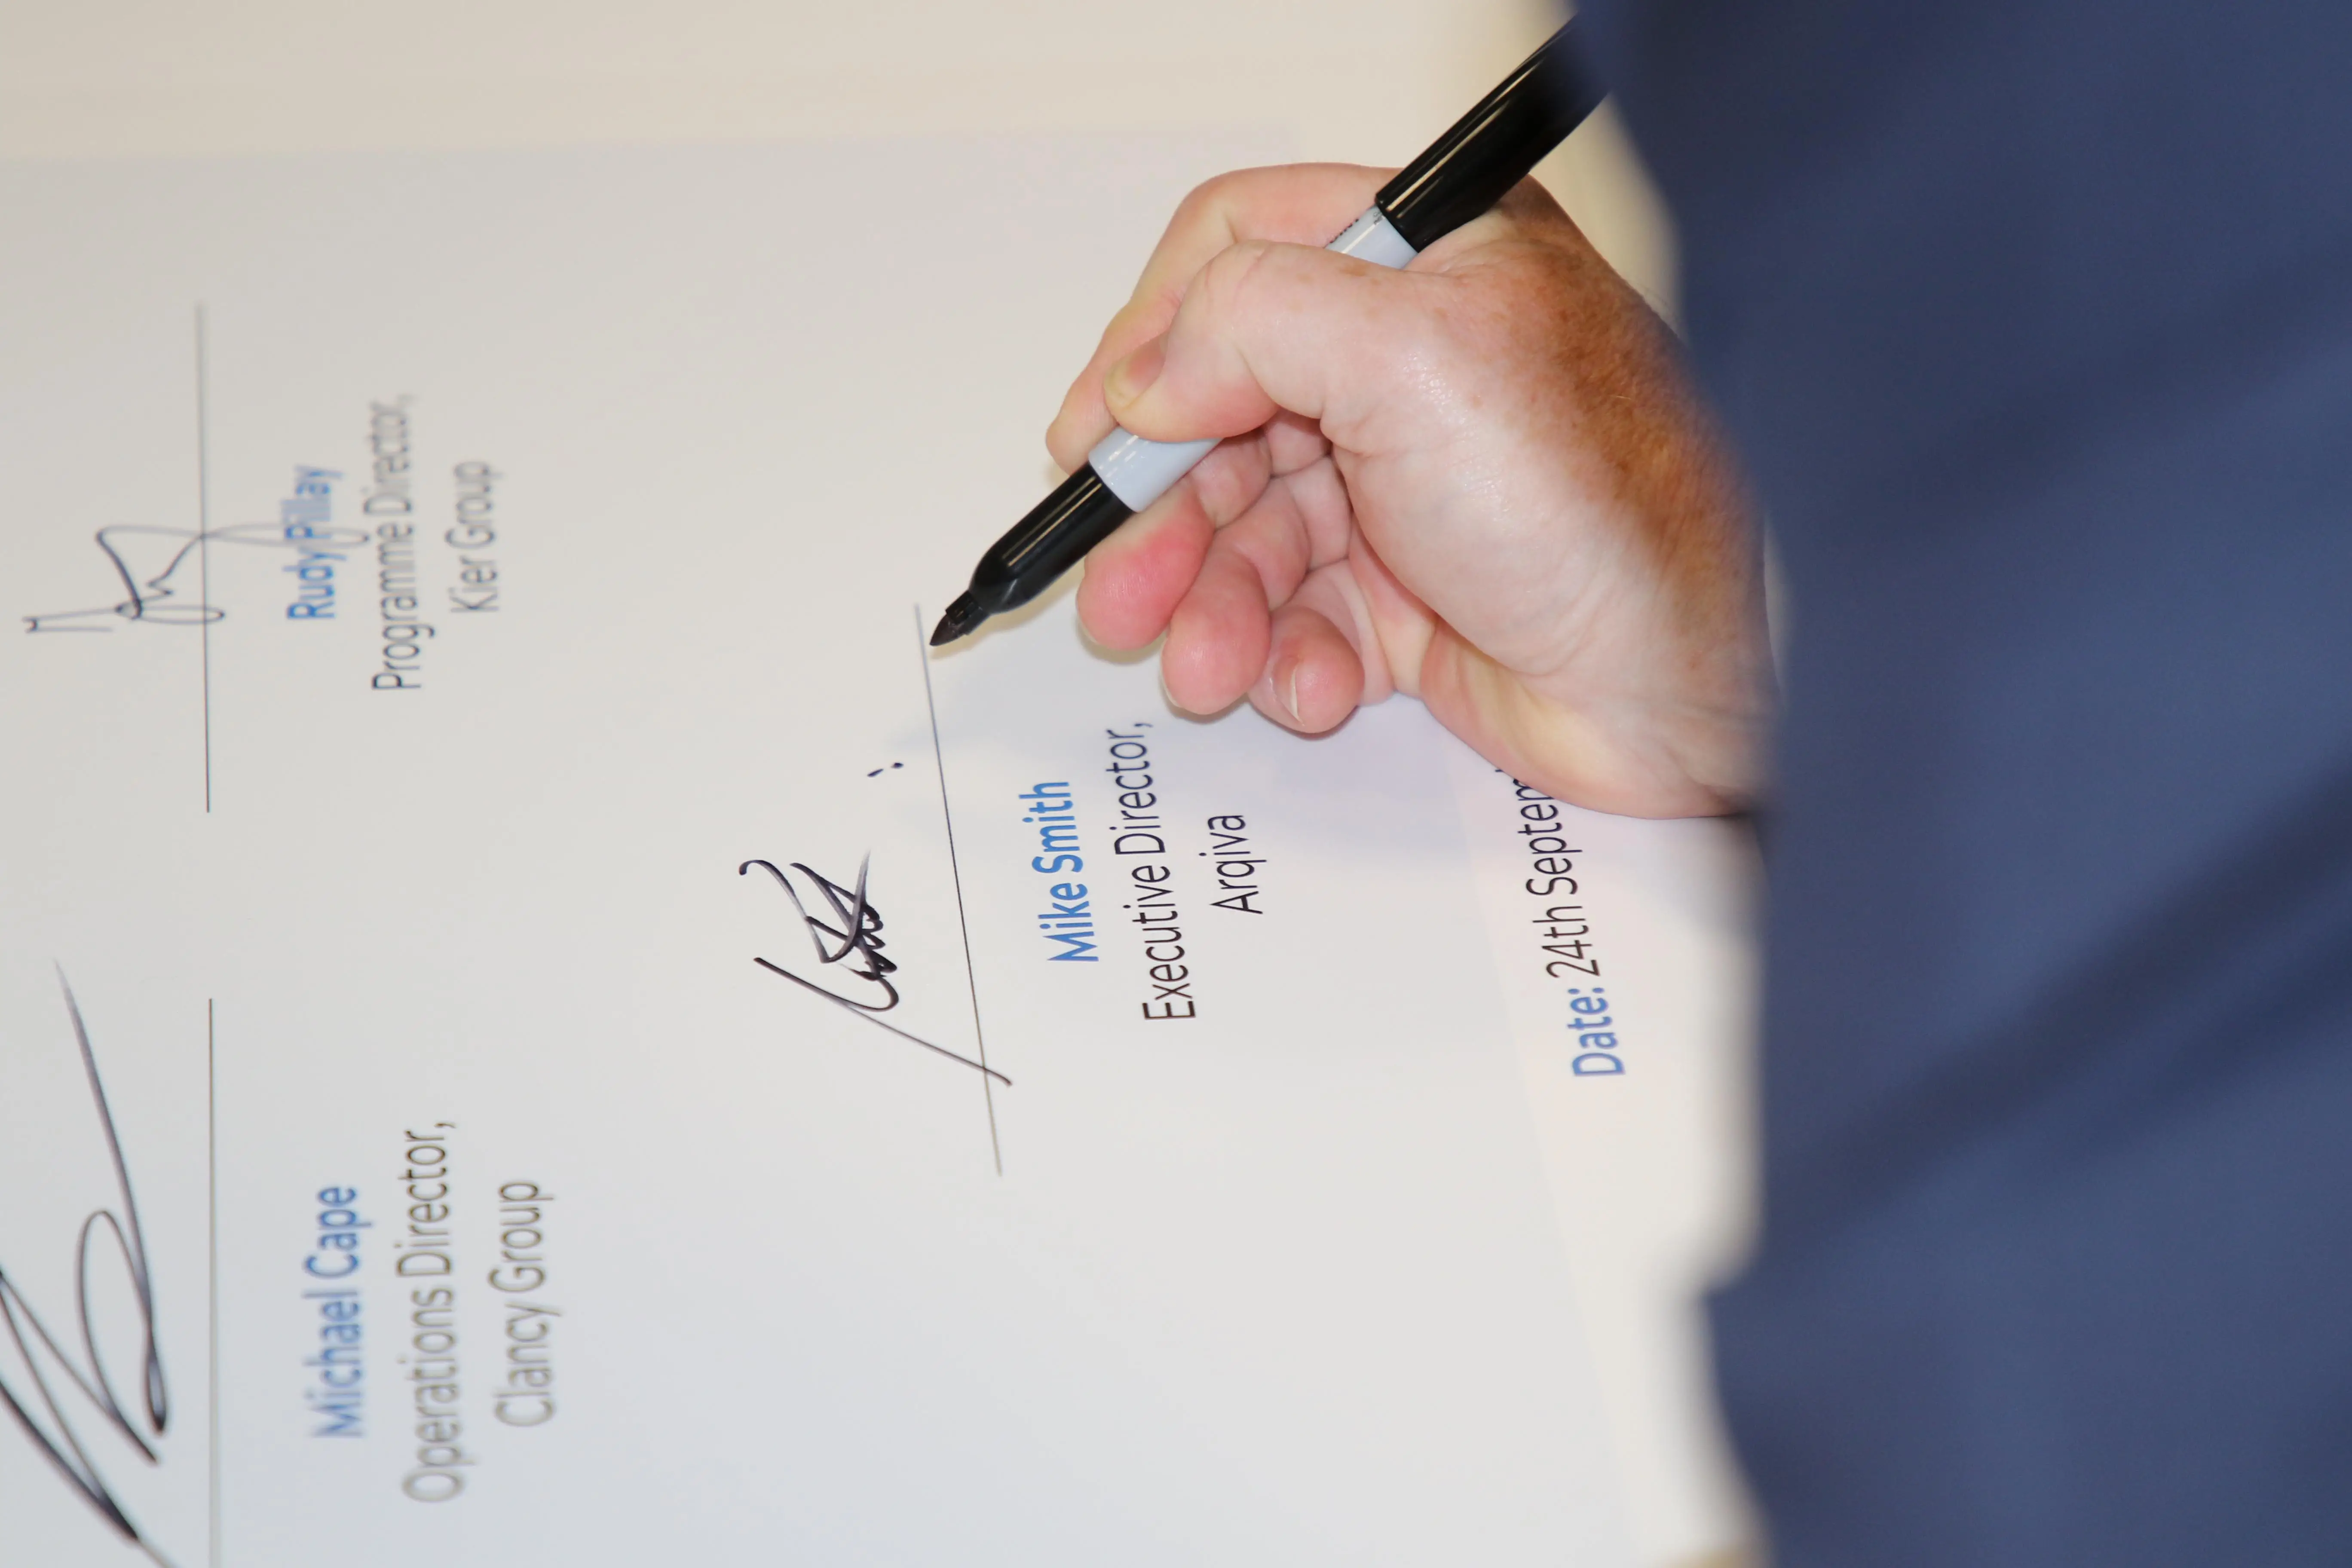 Michael Cape
Operations Director,
Clancy Group
Rudy Pillay
Programme Director,
Kier Group
Mike Smith
Executive Director,
Arqiva
Date: 24th Septem